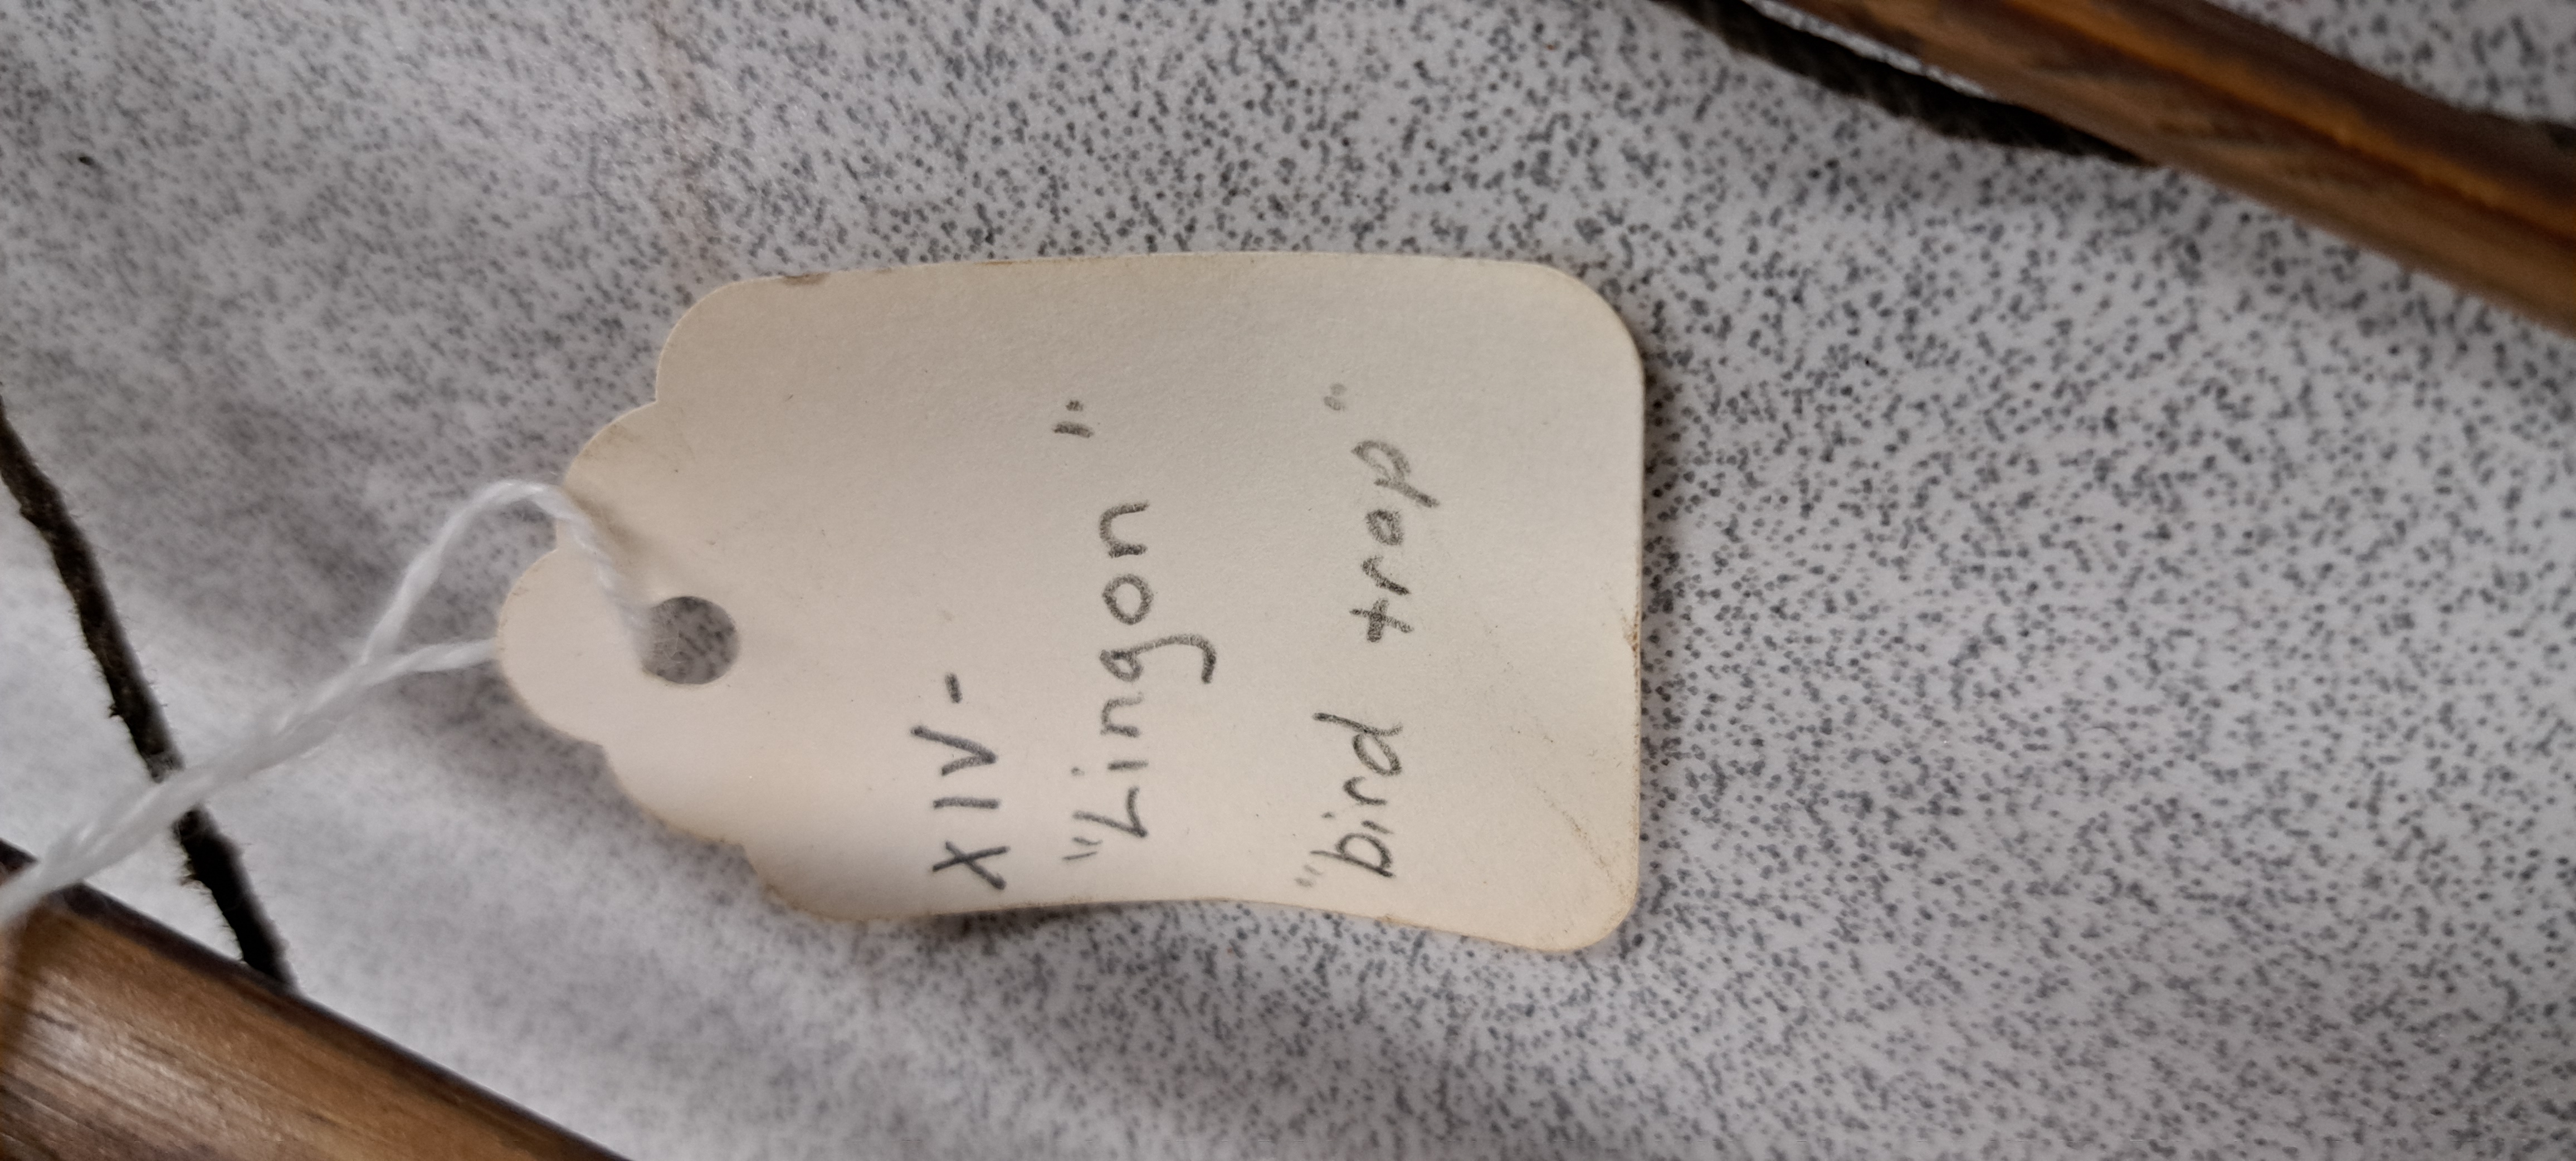 XIV-
"Lingon"
"bird trap"